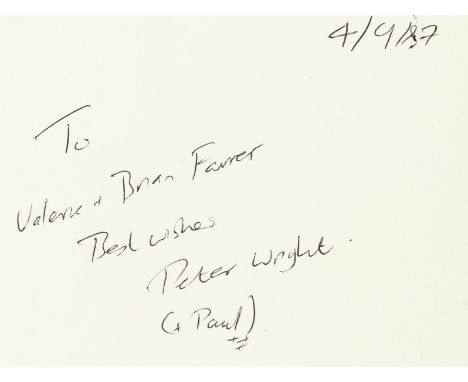 4/9/87
To
Valerie + Brian Farrer
Best wishes
Peter Wright.
(+ Paul)